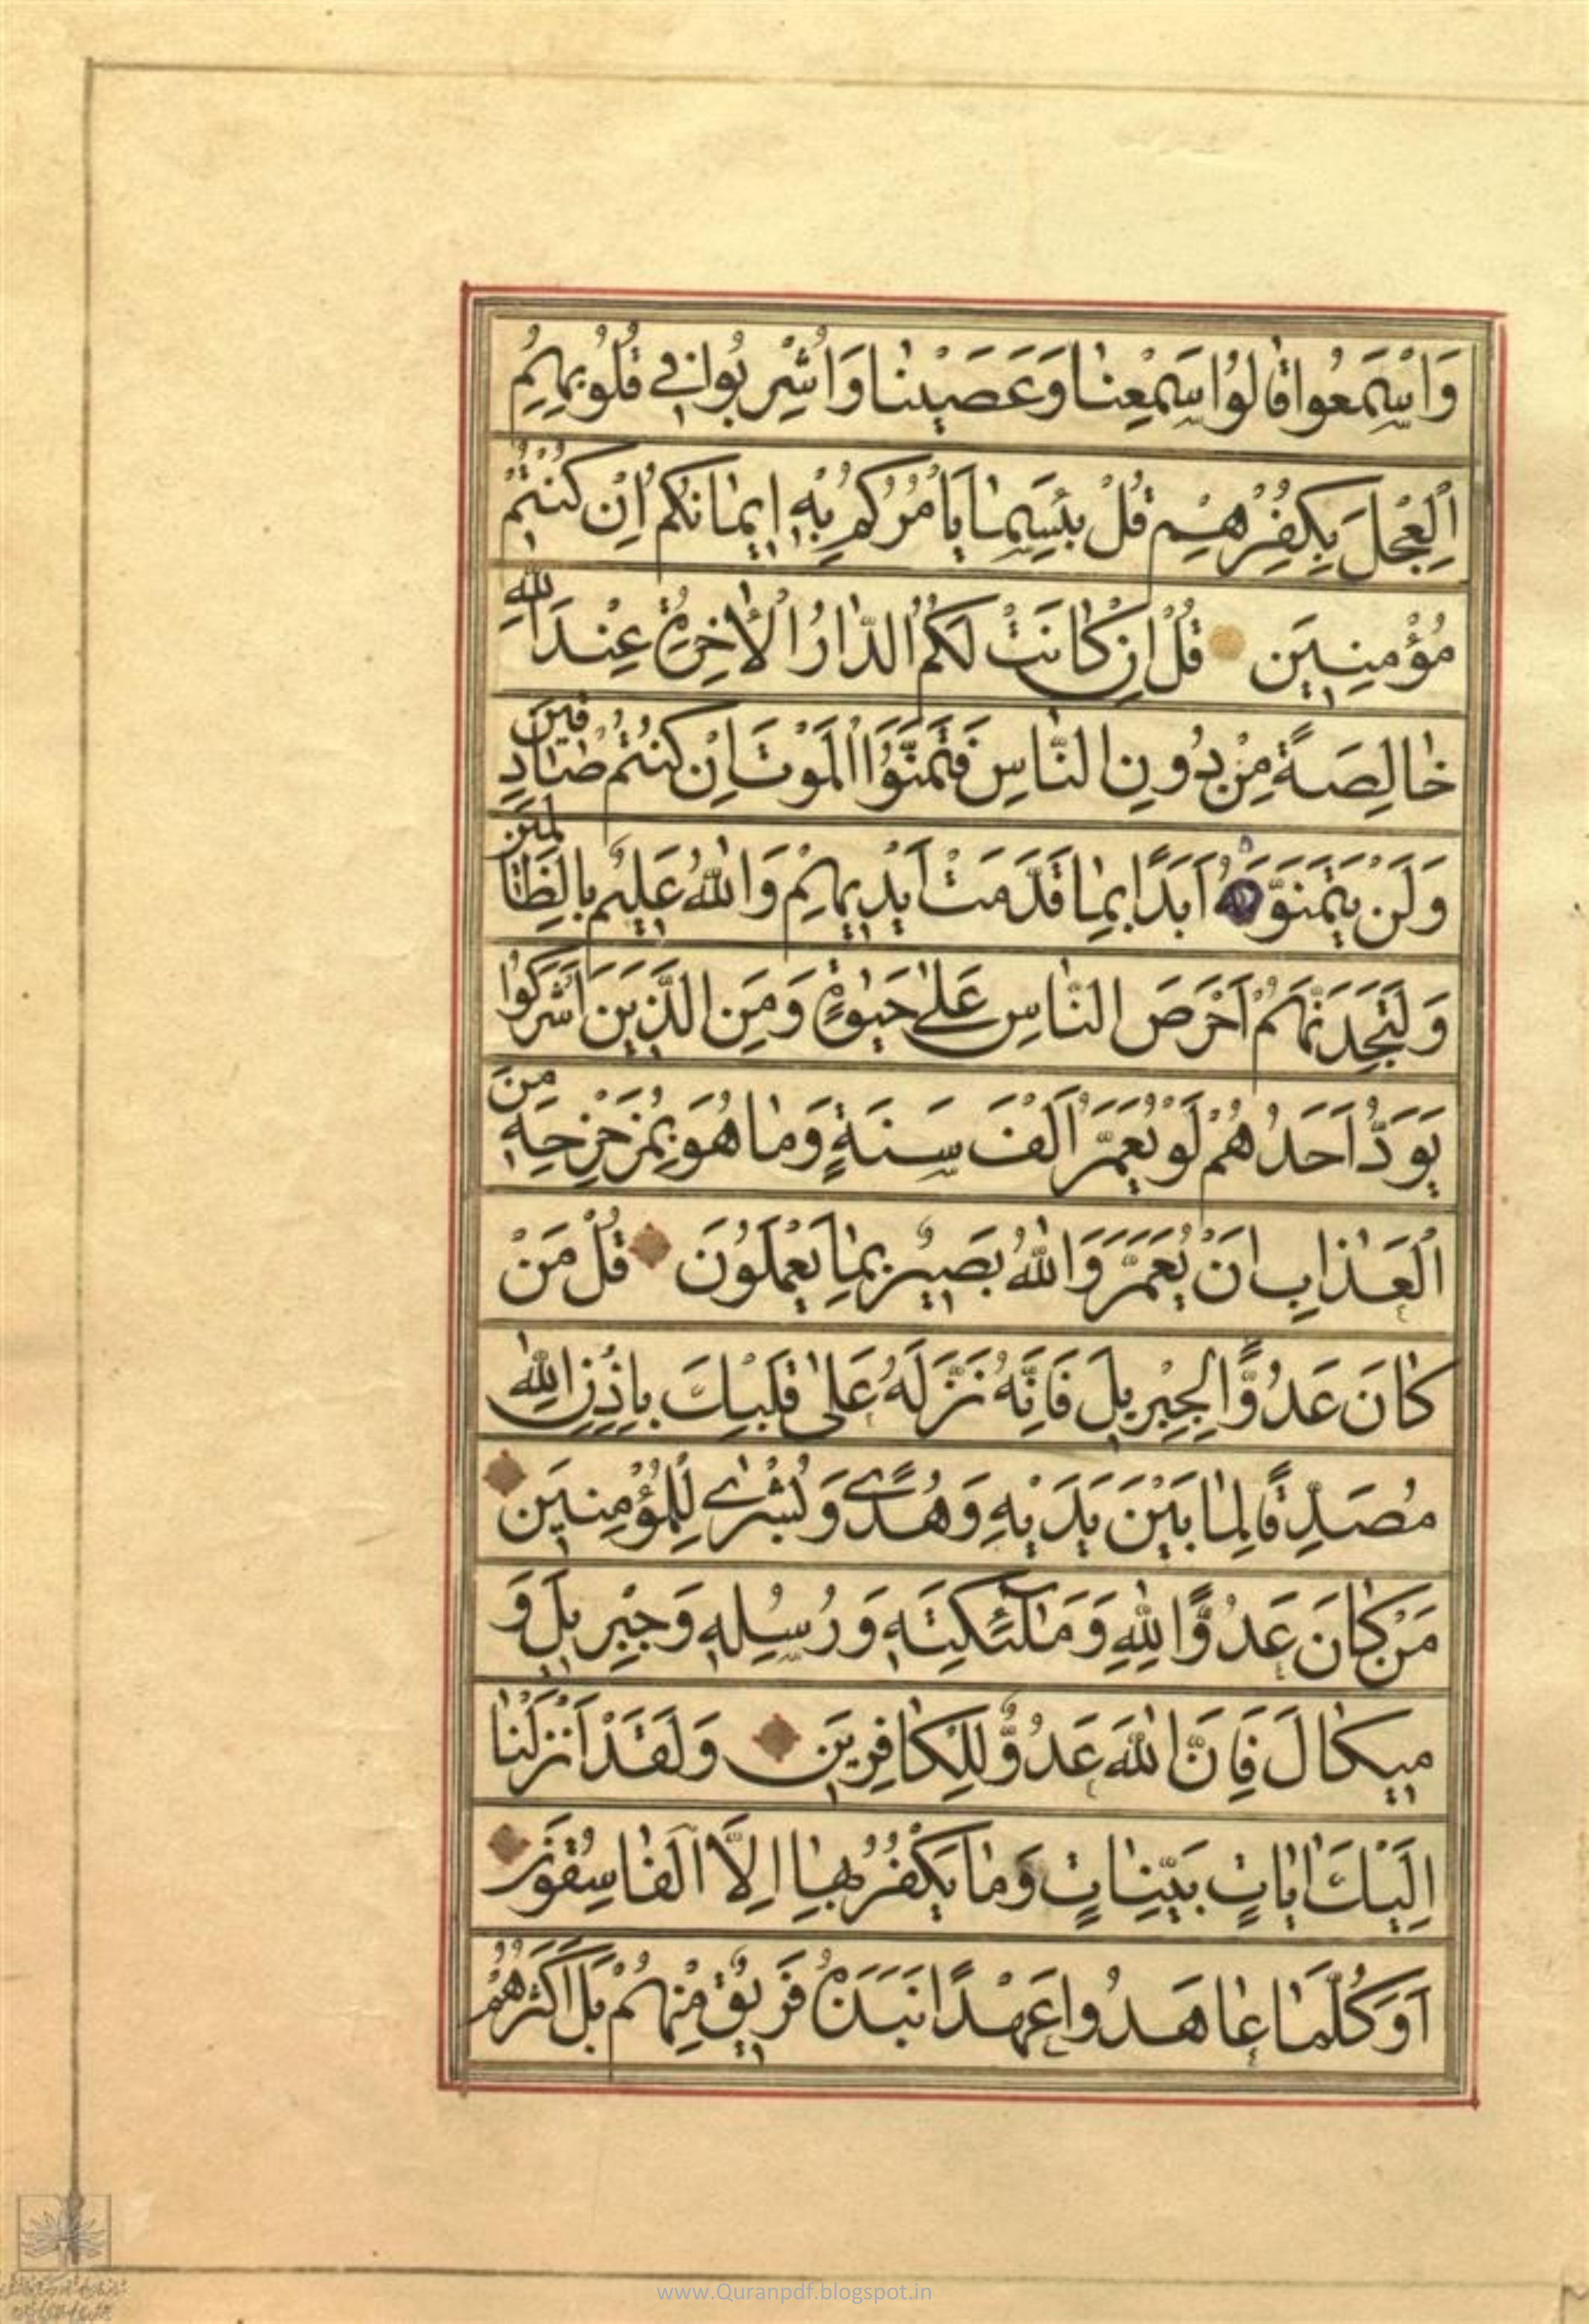 وَاسْمَعُوا قٰالُوا سَمِعْنٰا وَعَصَيْنٰا وَاُشْرِبُوا فِي قُلُوبِهِمُ
الْعِجْلَ بِكُفْرِهِمْ قُلْ بِئْسَمٰا يَأْمُرُكُمْ بِهِ اِيمٰانُكُمْ اِنْ كُنْتُمْ
مُؤْمِنِينَ قُلْ اِنْ كٰانَتْ لَكُمُ الدّٰارُ الْاٰخِرَةُ عِنْدَ اللّٰهِ
خٰالِصَةً مِنْ دُونِ النّٰاسِ فَتَمَنَّوُا الْمَوْتَ اِنْ كُنْتُمْ صٰادِقِينَ
وَلَنْ يَتَمَنَّوْهُ اَبَدًا بِمٰا قَدَّمَتْ اَيْدِيهِمْ وَاللّٰهُ عَلِيمٌ بِالظّٰالِمِينَ
وَلَتَجِدَنَّهُمْ اَحْرَصَ النّٰاسِ عَلىٰ حَيٰوةٍ وَمِنَ الَّذِينَ اَشْرَكُوا
يَوَدُّ اَحَدُهُمْ لَوْ يُعَمَّرُ اَلْفَ سَنَةٍ وَمٰا هُوَ بِمُزَحْزِحِهِ مِنَ
الْعَذٰابِ اَنْ يُعَمَّرَ وَاللّٰهُ بَصِيرٌ بِمٰا يَعْمَلُونَ قُلْ مَنْ
كٰانَ عَدُوًّا لِجِبْرِيلَ فَاِنَّهُ نَزَّلَهُ عَلىٰ قَلْبِكَ بِاِذْنِ اللّٰهِ
مُصَدِّقًا لِمٰا بَيْنَ يَدَيْهِ وَهُدًى وَبُشْرٰى لِلْمُؤْمِنِينَ
مَنْ كٰانَ عَدُوًّا لِلّٰهِ وَمَلٰٓئِكَتِهِ وَرُسُلِهِ وَجِبْرِيلَ وَ
مِيكٰالَ فَاِنَّ اللّٰهَ عَدُوٌّ لِلْكٰافِرِينَ وَلَقَدْ اَنْزَلْنٰا
اِلَيْكَ اٰيٰاتٍ بَيِّنٰاتٍ وَمٰا يَكْفُرُ بِهٰا اِلَّا الْفٰاسِقُونَ
اَوَكُلَّمٰا عٰاهَدُوا عَهْدًا نَبَذَهُ فَرِيقٌ مِنْهُمْ بَلْ اَكْثَرُهُمْ
www.Quranpdf.blogspot.in